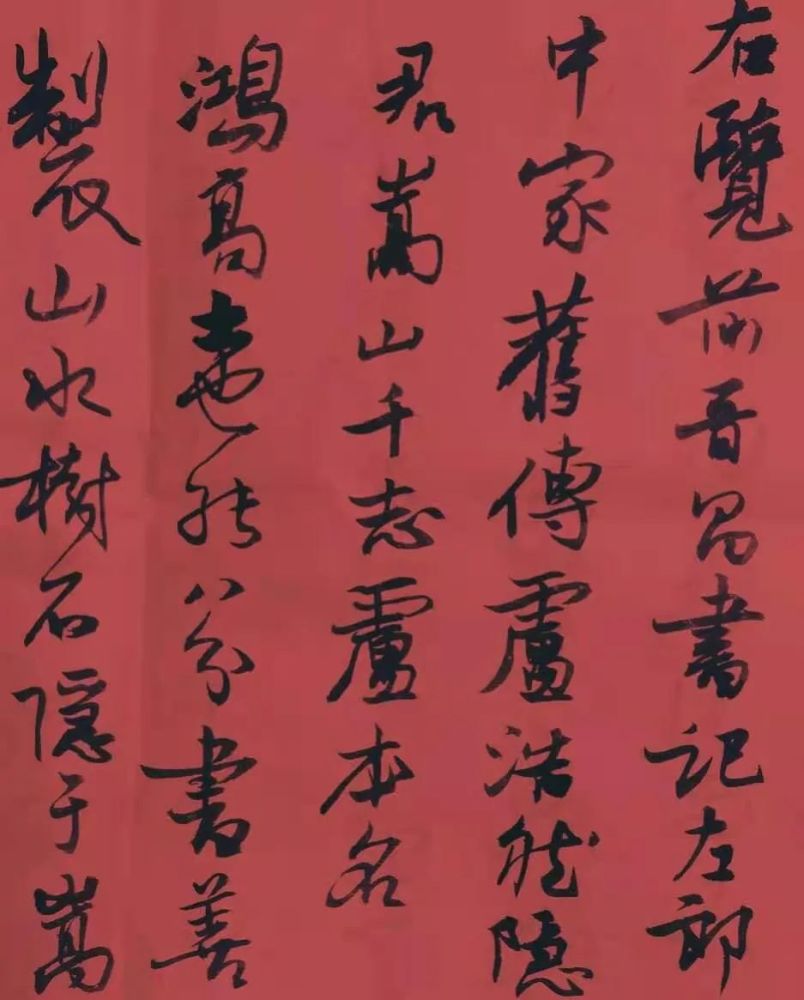 右覽前晉昌書記左郎
中家舊傳盧浩然隱
君嵩山十志盧本名
鴻高士也能八分書善
製山水樹石隱于嵩